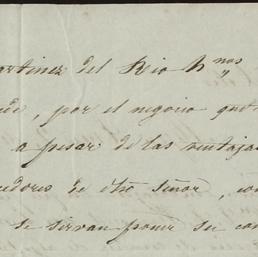 artinez del Rio H.nos
, por el negocio que
a pesar de las ventajas
edores de dho Señor, con
se sirvan poner su con